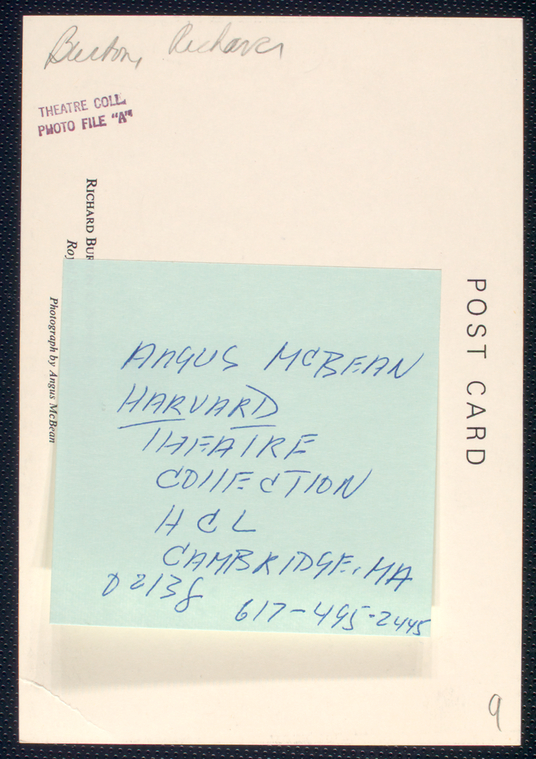 Burton, Richard
THEATRE COLL.
PHOTO FILE "A"
RICHARD BUR
Roy
Photograph by Angus McBean
POST CARD
ANGUS MCBEAN
HARVARD
THEATRE
COLLECTION
HCL
CAMBRIDGE, MA
02138
617-495-2445
9